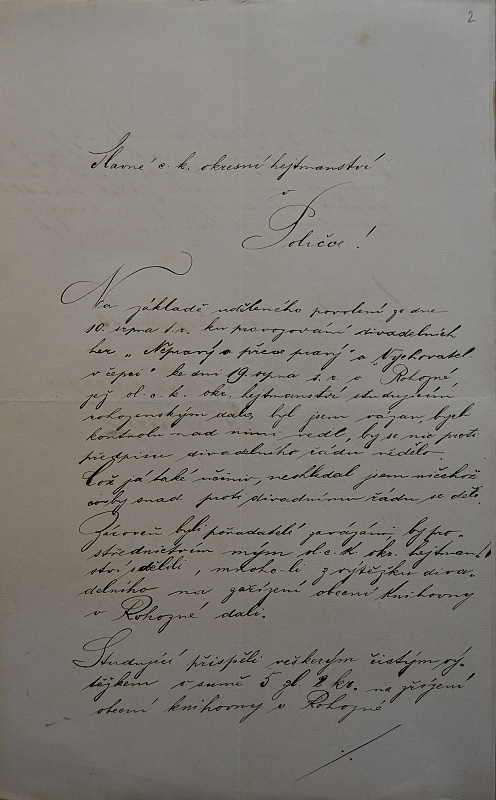 2
Slavné c. k. okresní hejtmanství
v
Poličce!
Na základě uděleného povolení ze dne
10. srpna t. r. ku provozování divadelních
her „Nepravý a přece pravý" a Vychovatel
v čepci" ke dni 19. srpna t. r. v Rohozné,
jež sl. c. k. okr. hejtmanství studujícím
rohozenským dalo, byl jsem vázán, bych
kontrolu nad nimi vedl, by se nic proti
předpisu divadelního řádu nedělo.
Což já také učiniv, neshledal jsem ničehož
co by snad proti divadnímu řádu se dělo.
Zároveň byli pořadatelé zavázáni, by pro-
střednictvem mým sl. c. k. okr. hejtman-
ství sdělili, mnoho-li z výtěžku diva-
delního na zařízení obecní knihovny
v Rohozné dali.
Studující přispěli veškerým čistým vý-
těžkem v sumě 5 zl. 2 kr. na zřízení
obecní knihovny v Rohozné
./.